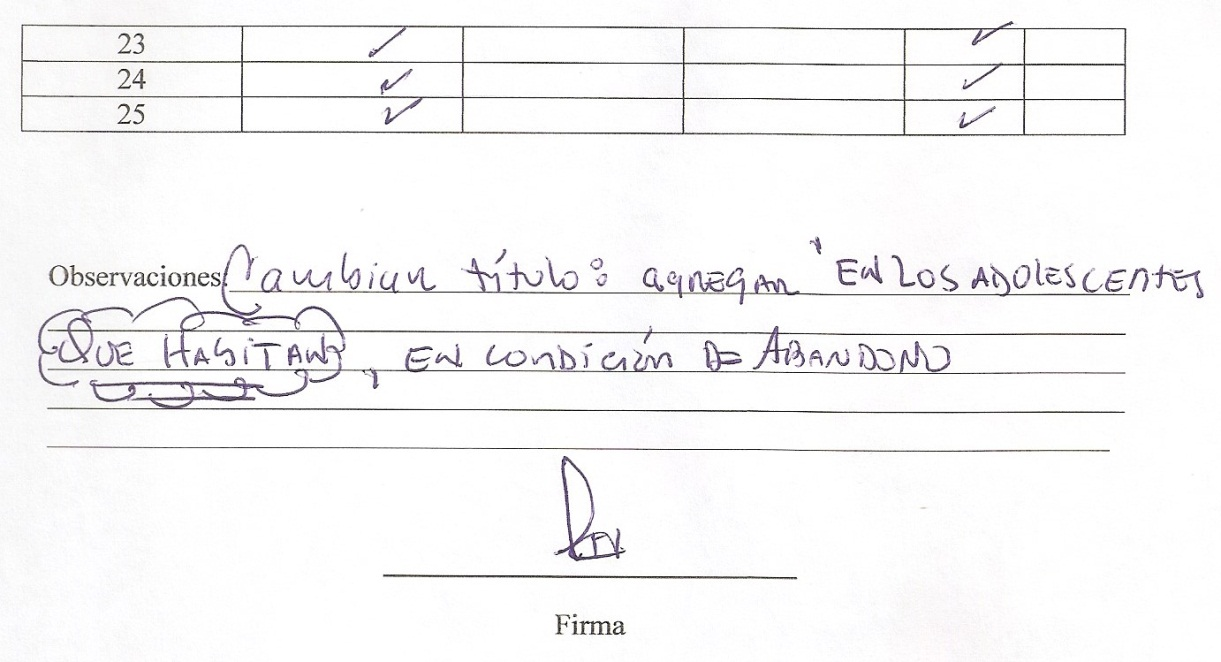 23 ✓ ✓
24 ✓ ✓
25 ✓ ✓
Observaciones Cambiar título: agregar " EN LOS ADOLESCENTES
QUE HABITAN, EN CONDICIÓN DE ABANDONO
Firma